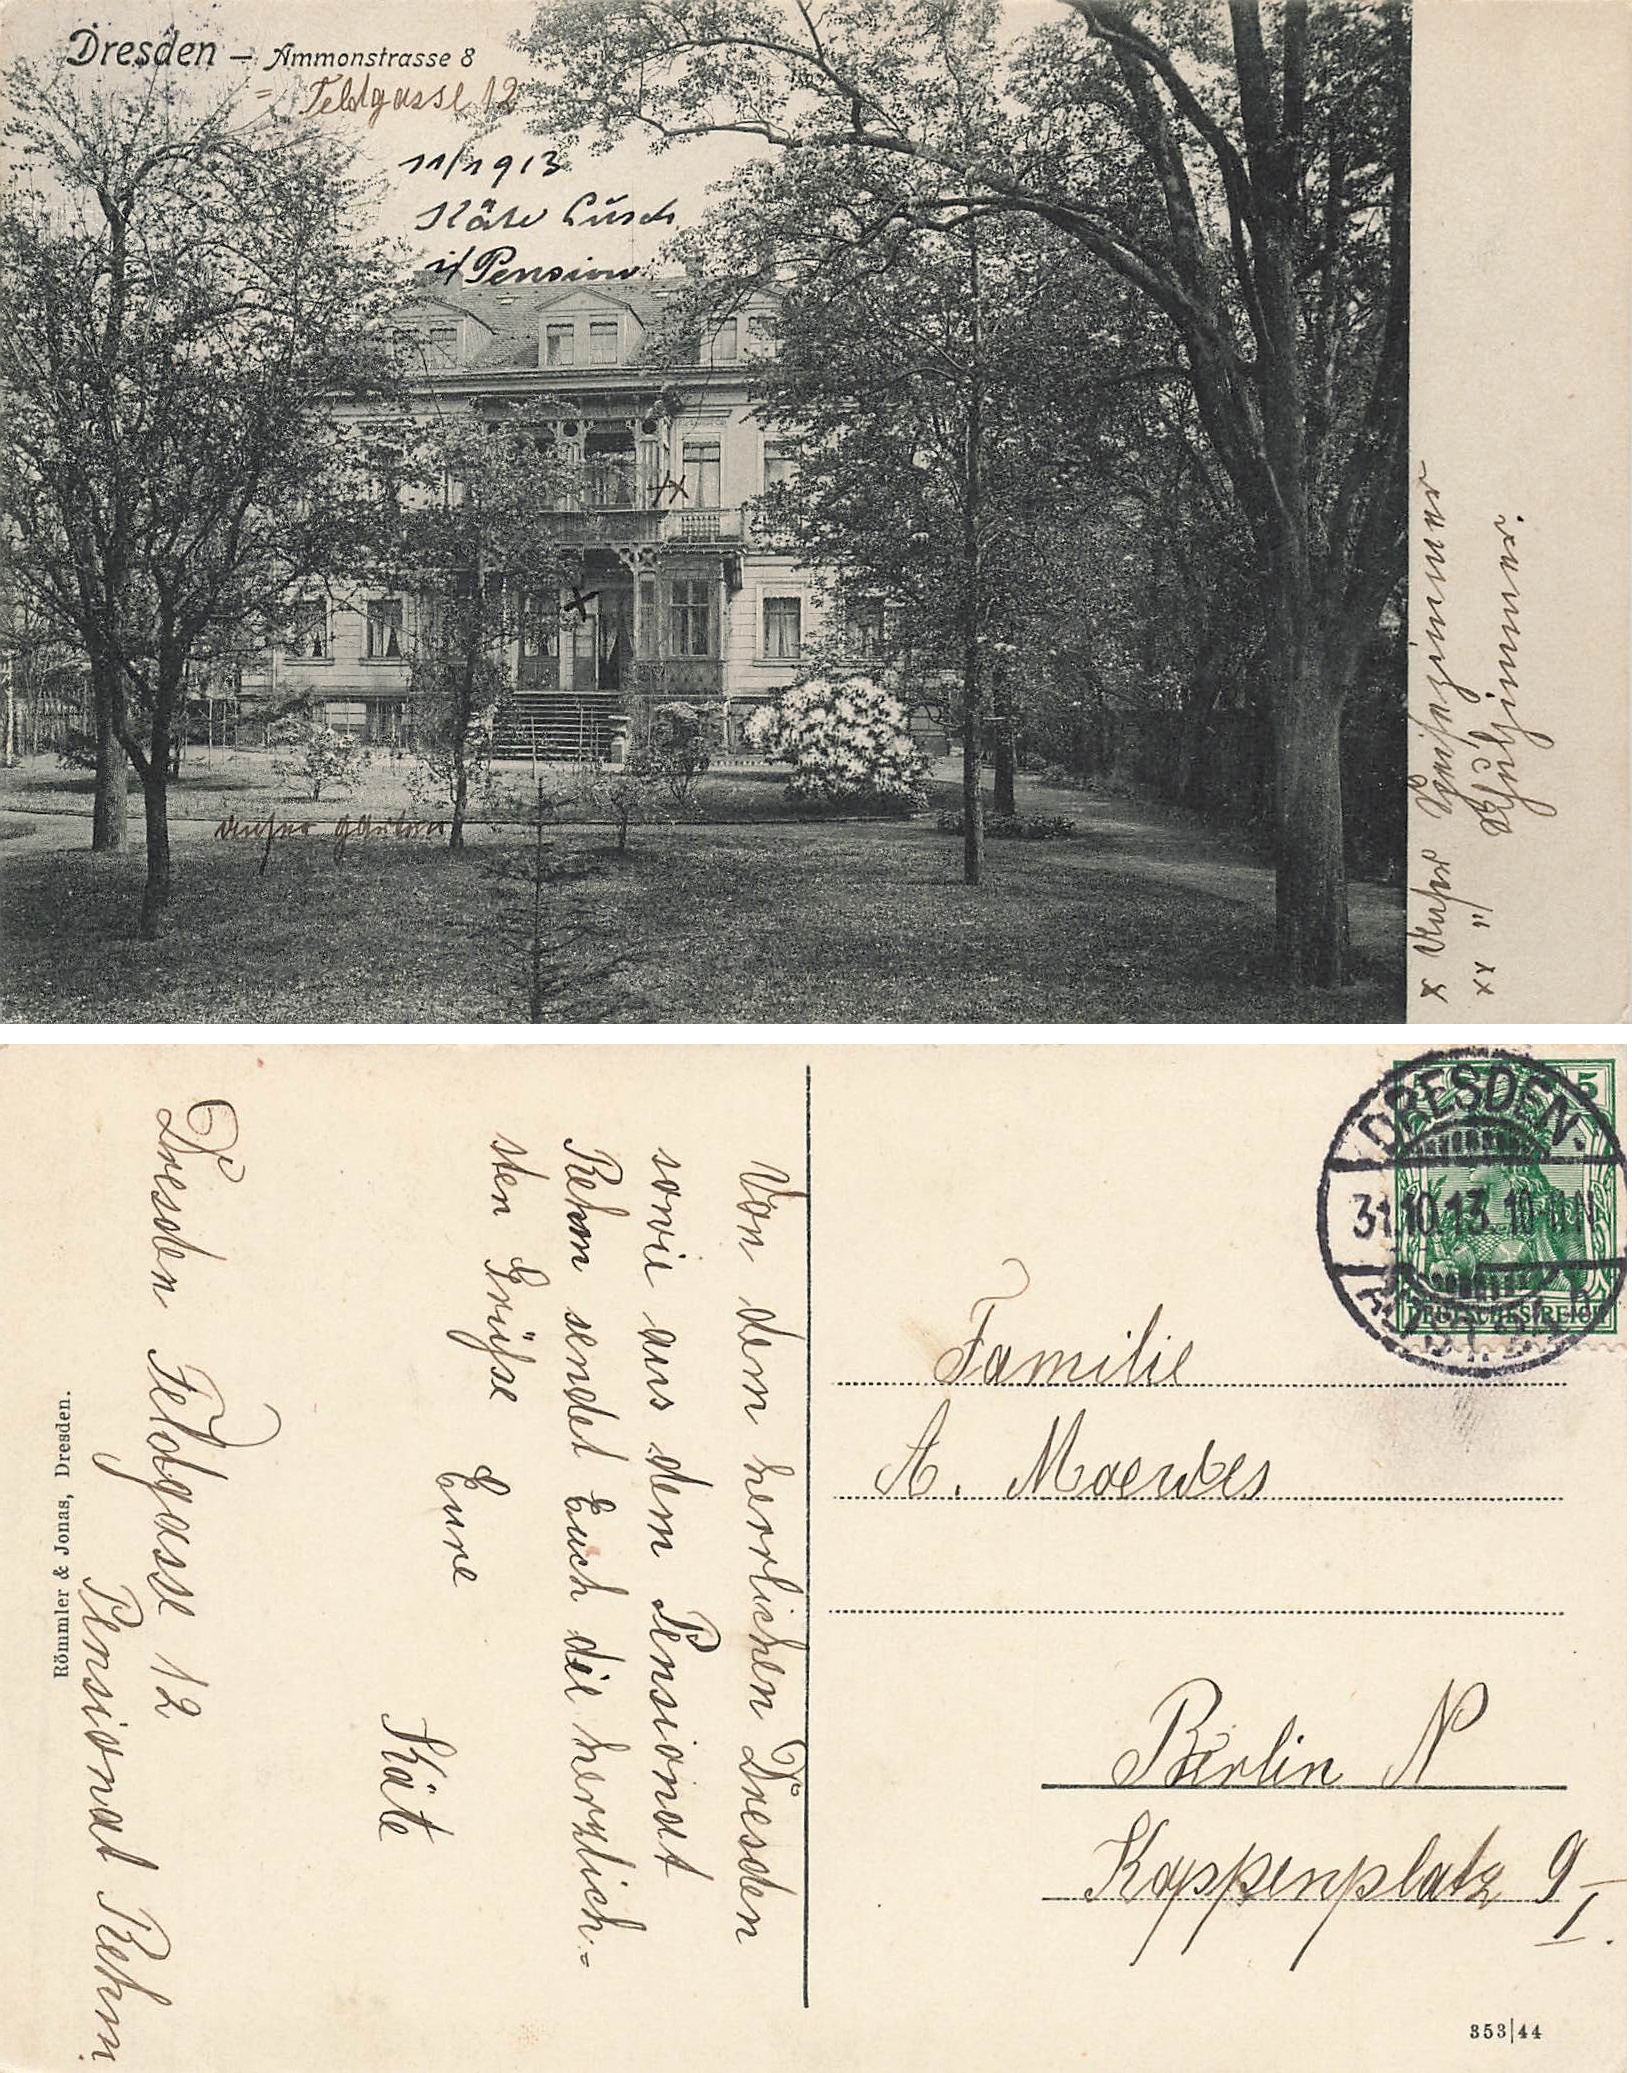 Dresden – Ammonstrasse 8
= Feldgasse 12
11/1913
Käte Lusch
i/ Pension
unser Garten
x Unser Speisezimmer
xx " Schulzimmer
DRESDEN.
31.10.13. 10-11 N
DEUTSCHES REICH
5
Von dem herrlichen Dresden
sowie aus dem Pensionat
Rehm sendet Euch die herzlich-
sten Grüße Eure
Käte
Dresden Feldgasse 12
Pensionat Rehm.
Römmler & Jonas, Dresden.
Familie
A. Maerkes
Berlin N
Koppenplatz 9 I.
353|44